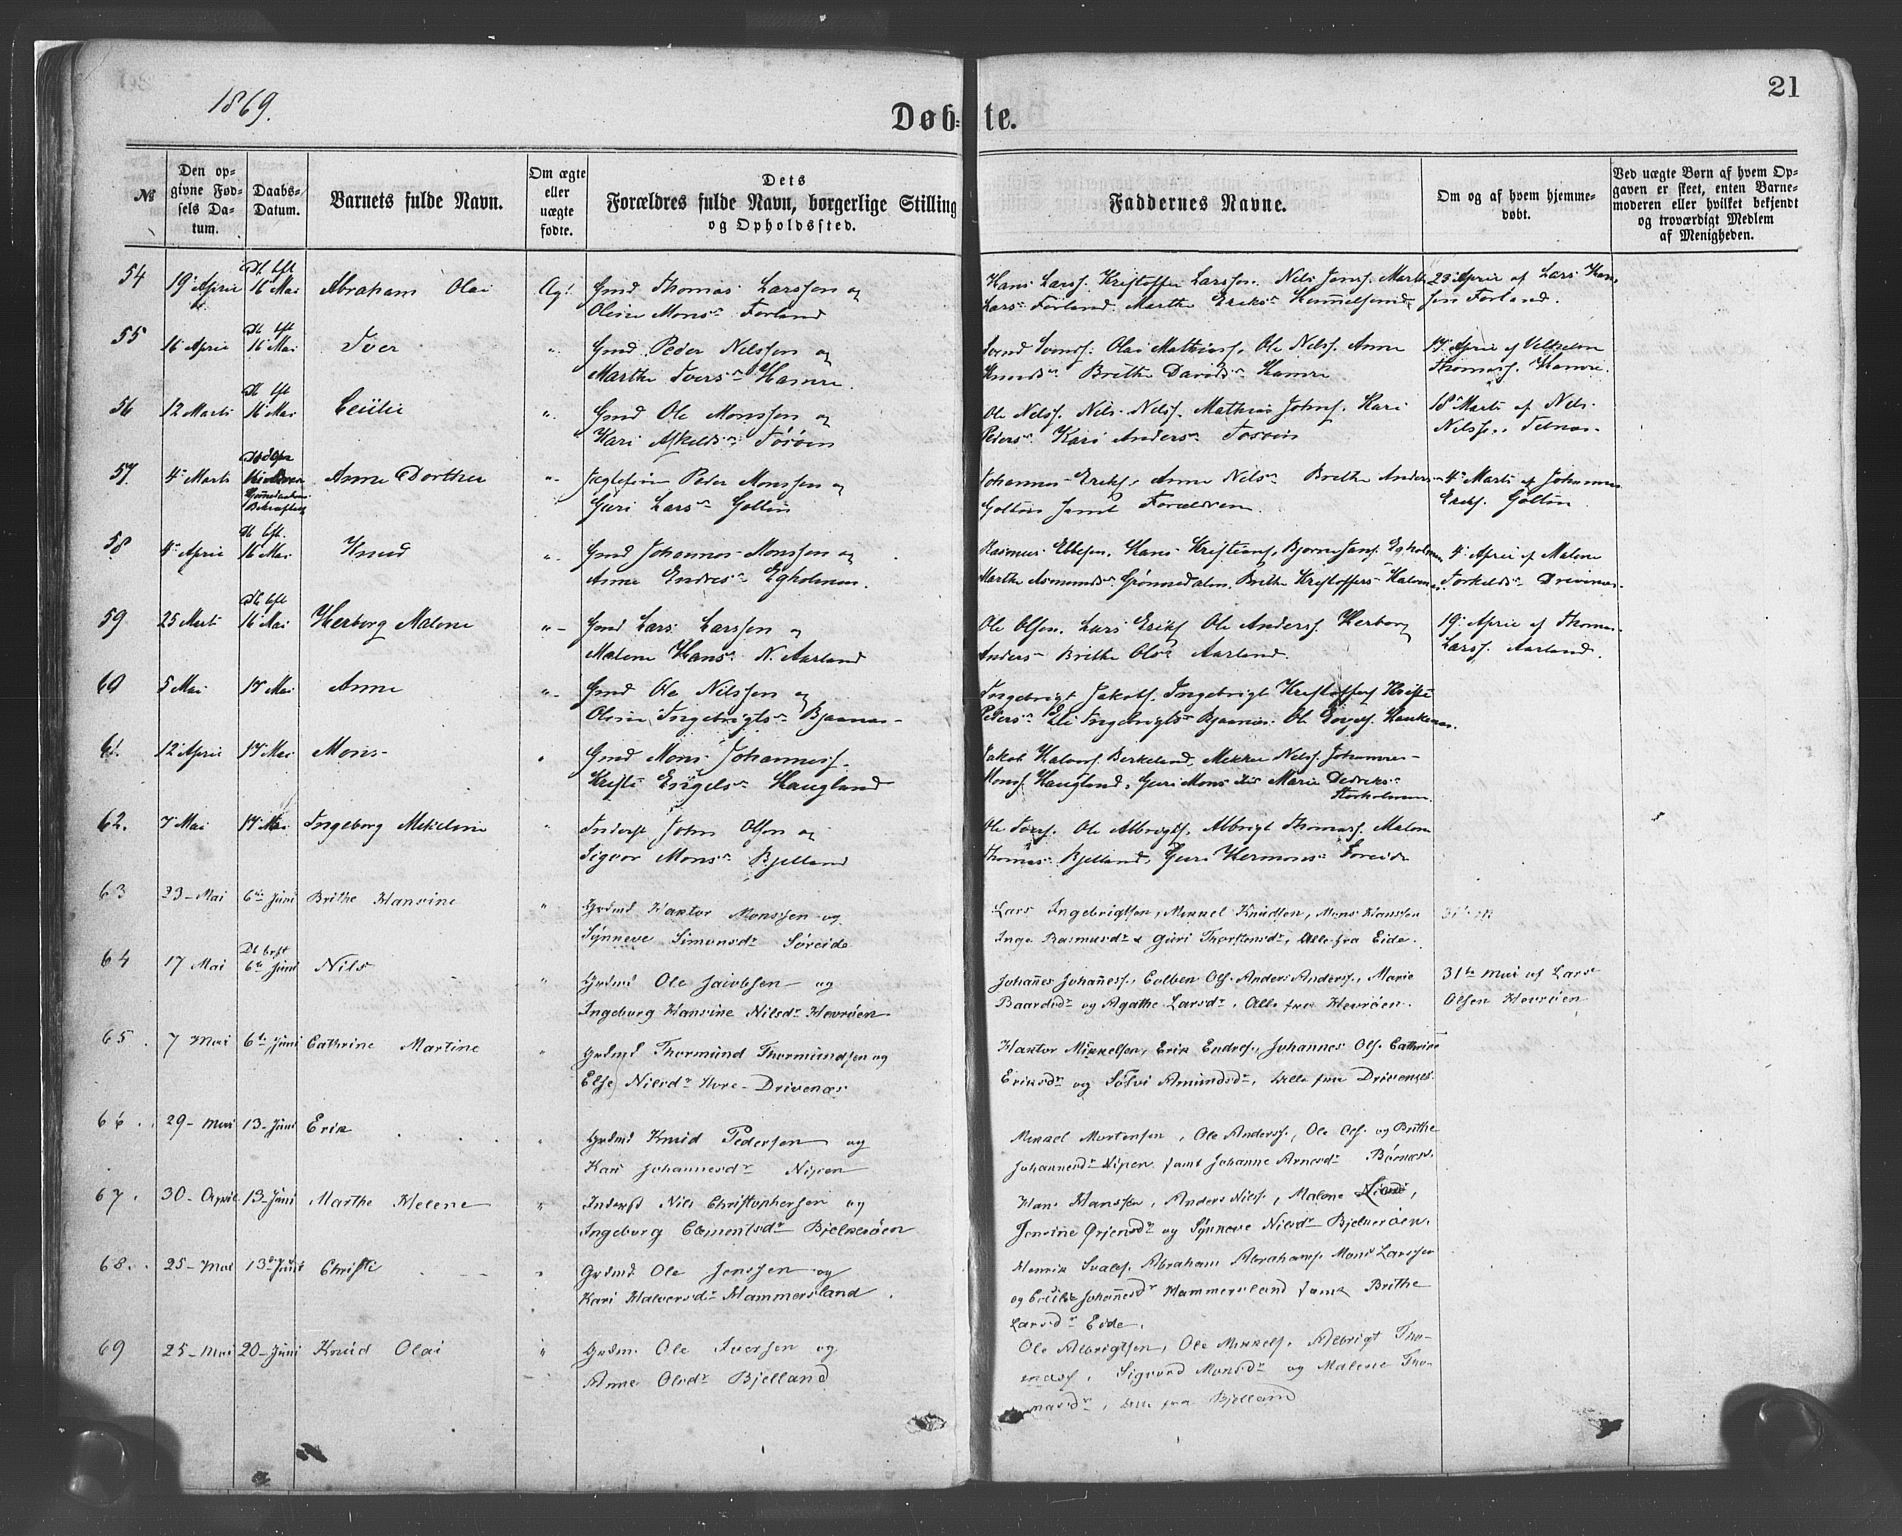 1869.
21
Døb-te.
№
Den op-
givne Fød-
sels Da-
tum.
Daabs-
Datum.
Barnets fulde Navn.
Om ægte
eller
uægte
fødte.
Dets
Forældres fulde Navn, borgerlige Stilling
og Opholdssted.
Faddernes Navne.
Om og af hvem hjemme-
døbt.
Ved uægte Børn af hvem Op-
gaven er skeet, enten Barne-
moderen eller hvilket bekjendt
og troværdigt Medlem
af Menigheden.
54 19 April 16 Mai Abraham Olai Ægt Gmd Thomas Larssen og
Oline Monsdr Forland
Hans Larss. Kristoffer Larssen. Nils Jonss. Marthe
Larsdr Forland. Marthe Eriksdr
23 April af Lars Han-
sen Forland.
55 16 April 16 Mai Iver " Gmd Peder Nilssen og
Marthe Iversdr Hamre.
Svend Svends. Olai Mathiass. Ole Nilss. Anne
Knudsdr Brithe Davidsdr Hamre
17 April af Vilhelm
Thomass. Hamre.
56 12 Marts 16 Mai Cecilie " Gmd Ole Monssen og
Kari Askeldsdr
Ole Nilss. Nils Nilss. Mathias Johns. Kari
Pedersdr Kari Andersdr
18 Marts af Nils
Nilss.
57 4 Marts Anne Dorthea " Peder Monssen og
Guri Larsdr Goltin
Johannes Eriks. Anne Nilsdr Brithe Anders-
Goltin samt Forældrene
4 Marts af Johannes
Eriks. Goltin
58 4 April 16 Mai Knud " Gmd Johannes Monssen og
Anne Endresdr Egholmen.
Rasmus Ebbesen, Hans Kristians. Bjørne Jans. Egholmen
Marthe Asmundsdr Grønnedalen, Brithe Kristoffersdr
4 April af Malene
Torkildsdr Drivenes
59 25 Marts 16 Mai Herborg Malene " Gmd Lars Larssen og
Malene Hansdr N. Aarland
Ole Olsen. Lars Eriks. Ole Anderss. Herborg
Andersdr Brithe Olsdr Aarland.
19 April af Thomas
Larss. Aarland.
60 5 Mai 17 Mai Anne " Gmd Ole Nilssen og
Oline Ingebrigtsdr Bjaanes
Ingebrigt Jakobs. Ingebrigt Kristoffers
Pedersdr Ingebrigtsdr Bjaanes. Ole
61. 12 April 17 Mai Mons " Gmd Mons Johanness.
Kristi Engelsdr Haugland
Jakob Halvors. Berkeland, Mikkel Nilss. Johannes
Monss. Haugland, Guri Monsdr Marie Dedriksdr
Storholmen.
62. 7 Mai 17 Mai Ingeborg Mikeline " Inderst John Olsen og
Sigvor Monsdr Bjelland
Ole Ivers. Ole Albrigts. Albrigt Thomass. Malene
Thomasdr Bjelland, Guri Hermonsdr Soreide
63 23 Mai 6te Juni Brithe Hansine " Grdmd Hartvr Monssen og
Synneve Simonsdr Søreide
Lars Ingebrigtsen, Mikkel Knudsen, Mons Hanssen
Inga Rasmusdr & Guri Thorstensdr, Alle fra Eide.
64 17 Mai 6te Juni Nils " Grdmd Ole Jacobsen og
Ingeborg Hansine Nilsdr Hevrøen
Johanes Johaness., Colben Ols. Anders Anderss., Marie
Baardsdr og Agathe Larsdr, Alle fra Hevrøen.
31te Mai af Lars
Olsen Hevrøen
65 7 Mai 6te Juni Cathrine Martine " Grdmd Thormund Thormundsen og
Else Nilsdr Hore-Drivenæs
Hartvr Mikkelsen, Erik Endres., Johannes Ols. Cathrine
Eriksdr og Sølvi Amundsdr, Alle fra Drivenæs.
66. 29 Mai 13 Juni Erik " Grdmd Knud Pedersen og
Kari Johannesdr Nipen
Mikael Mortensen, Ole Anderss., Ole Ols. og Brithe
Johannesdr Nipen samt Johanne Arnesdr Børnæs.
67. 30 April 13 Juni Marthe Helene " Inderst Nils Christophersen og
Ingeborg Clementsdr Bjelkerøen
Hans Hanssen, Anders Nils., Malene
Jensine Ørjensdr og Synneve Nilsdr Bjelkerøen.
68. 25 Mai 13de Juni Christi " Grdmd Ole Jenssen og
Kari Halversdr Hammersland
Henrik Svales. Abraham Abrahams. Mons Larssen
og Cecilie Johannesdr Hammersland samt Brithe
Larsdr Eide.
69 25 Mai 20 Juni Knud Olai " Grdm. Ole Iversen og
Anne Olsdr Bjelland
Ole Albrigtsen, Ole Mikkels. Albrigt Tho-
mass., Sigvord Monsdr og Malene Tho-
masdr, Alle fra Bjelland